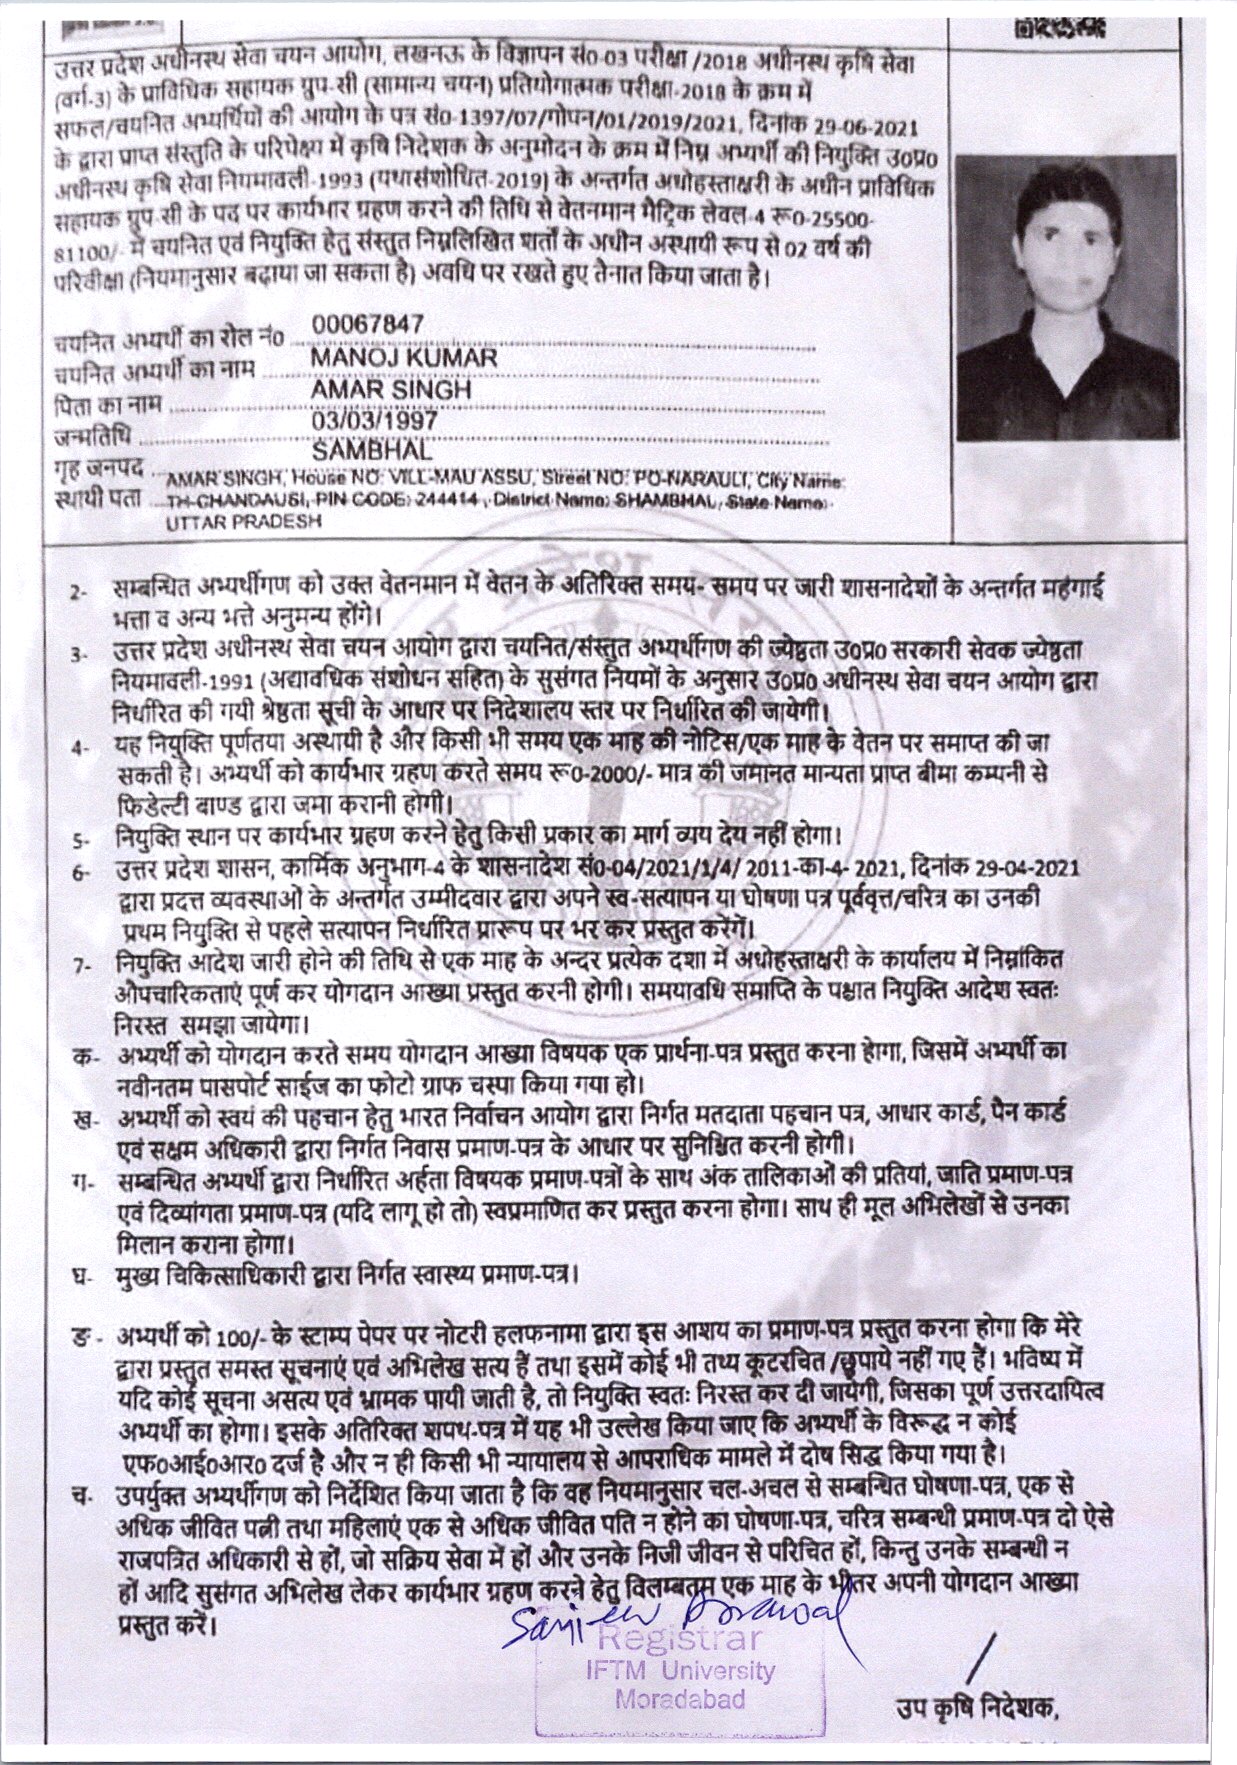 उत्तर प्रदेश अधीनस्थ सेवा चयन आयोग, लखनऊ के विज्ञापन सं0-03 परीक्षा /2018 अधीनस्थ कृषि सेवा
(वर्ग-3) के प्राविधिक सहायक ग्रुप-सी (सामान्य चयन) प्रतियोगात्मक परीक्षा-2018 के क्रम में
सफल/चयनित अभ्यर्थियों की आयोग के पत्र सं0-1397/07/गोपन/01/2019/2021, दिनांक 29-06-2021
के द्वारा प्राप्त संस्तुति के परिपेक्ष्य में कृषि निदेशक के अनुमोदन के क्रम में निम्न अभ्यर्थी की नियुक्ति उ0प्र0
अधीनस्थ कृषि सेवा नियमावली-1993 (यथासंशोधित-2019) के अन्तर्गत अधोहस्ताक्षरी के अधीन प्राविधिक
सहायक ग्रुप-सी के पद पर कार्यभार ग्रहण करने की तिथि से वेतनमान मैट्रिक लेवल-4 रू0-25500-
81100/- में चयनित एवं नियुक्ति हेतु संस्तुत निम्नलिखित शर्तों के अधीन अस्थायी रूप से 02 वर्ष की
परिवीक्षा (नियमानुसार बढ़ाया जा सकता है) अवधि पर रखते हुए तैनात किया जाता है।
चयनित अभ्यर्थी का रोल नं0 00067847
चयनित अभ्यर्थी का नाम MANOJ KUMAR
पिता का नाम AMAR SINGH
जन्मतिथि 03/03/1997
गृह जनपद SAMBHAL
स्थायी पता AMAR SINGH, House NO: VILL-MAU ASSU, Street NO: PO-NARAULI, City Name:
TH-CHANDAUSI, PIN CODE: 244414 , District Name: SHAMBHAL, State Name:
UTTAR PRADESH
2- सम्बन्धित अभ्यर्थीगण को उक्त वेतनमान में वेतन के अतिरिक्त समय- समय पर जारी शासनादेशों के अन्तर्गत महंगाई
भत्ता व अन्य भत्ते अनुमन्य होंगे।
3- उत्तर प्रदेश अधीनस्थ सेवा चयन आयोग द्वारा चयनित/संस्तुत अभ्यर्थीगण की ज्येष्ठता उ0प्र0 सरकारी सेवक ज्येष्ठता
नियमावली-1991 (अद्यावधिक संशोधन सहित) के सुसंगत नियमों के अनुसार उ0प्र0 अधीनस्थ सेवा चयन आयोग द्वारा
निर्धारित की गयी श्रेष्ठता सूची के आधार पर निदेशालय स्तर पर निर्धारित की जायेगी।
4- यह नियुक्ति पूर्णतया अस्थायी है और किसी भी समय एक माह की नोटिस/एक माह के वेतन पर समाप्त की जा
सकती है। अभ्यर्थी को कार्यभार ग्रहण करते समय रू0-2000/- मात्र की जमानत मान्यता प्राप्त बीमा कम्पनी से
फिडेल्टी बाण्ड द्वारा जमा करानी होगी।
5- नियुक्ति स्थान पर कार्यभार ग्रहण करने हेतु किसी प्रकार का मार्ग व्यय देय नहीं होगा।
6- उत्तर प्रदेश शासन, कार्मिक अनुभाग-4 के शासनादेश सं0-04/2021/1/4/ 2011-का-4- 2021, दिनांक 29-04-2021
द्वारा प्रदत्त व्यवस्थाओं के अन्तर्गत उम्मीदवार द्वारा अपने स्व-सत्यापन या घोषणा पत्र पूर्ववृत्त/चरित्र का उनकी
प्रथम नियुक्ति से पहले सत्यापन निर्धारित प्रारूप पर भर कर प्रस्तुत करेंगें।
7- नियुक्ति आदेश जारी होने की तिथि से एक माह के अन्दर प्रत्येक दशा में अधोहस्ताक्षरी के कार्यालय में निम्नांकित
औपचारिकताएं पूर्ण कर योगदान आख्या प्रस्तुत करनी होगी। समयावधि समाप्ति के पश्चात नियुक्ति आदेश स्वतः
निरस्त समझा जायेगा।
क- अभ्यर्थी को योगदान करते समय योगदान आख्या विषयक एक प्रार्थना-पत्र प्रस्तुत करना होगा, जिसमें अभ्यर्थी का
नवीनतम पासपोर्ट साईज का फोटो ग्राफ चस्पा किया गया हो।
ख- अभ्यर्थी को स्वयं की पहचान हेतु भारत निर्वाचन आयोग द्वारा निर्गत मतदाता पहचान पत्र, आधार कार्ड, पैन कार्ड
एवं सक्षम अधिकारी द्वारा निर्गत निवास प्रमाण-पत्र के आधार पर सुनिश्चित करनी होगी।
ग- सम्बन्धित अभ्यर्थी द्वारा निर्धारित अर्हता विषयक प्रमाण-पत्रों के साथ अंक तालिकाओं की प्रतियां, जाति प्रमाण-पत्र
एवं दिव्यांगता प्रमाण-पत्र (यदि लागू हो तो) स्वप्रमाणित कर प्रस्तुत करना होगा। साथ ही मूल अभिलेखों से उनका
मिलान कराना होगा।
घ- मुख्य चिकित्साधिकारी द्वारा निर्गत स्वास्थ्य प्रमाण-पत्र।
ङ - अभ्यर्थी को 100/- के स्टाम्प पेपर पर नोटरी हलफनामा द्वारा इस आशय का प्रमाण-पत्र प्रस्तुत करना होगा कि मेरे
द्वारा प्रस्तुत समस्त सूचनाएं एवं अभिलेख सत्य हैं तथा इसमें कोई भी तथ्य कूटरचित /छुपाये नहीं गए हैं। भविष्य में
यदि कोई सूचना असत्य एवं भ्रामक पायी जाती है, तो नियुक्ति स्वतः निरस्त कर दी जायेगी, जिसका पूर्ण उत्तरदायित्व
अभ्यर्थी का होगा। इसके अतिरिक्त शपथ-पत्र में यह भी उल्लेख किया जाए कि अभ्यर्थी के विरूद्ध न कोई
एफ0आई0आर0 दर्ज है और न ही किसी भी न्यायालय से आपराधिक मामले में दोष सिद्ध किया गया है।
च- उपर्युक्त अभ्यर्थीगण को निर्देशित किया जाता है कि वह नियमानुसार चल-अचल से सम्बन्धित घोषणा-पत्र, एक से
अधिक जीवित पत्नी तथा महिलाएं एक से अधिक जीवित पति न होने का घोषणा-पत्र, चरित्र सम्बन्धी प्रमाण-पत्र दो ऐसे
राजपत्रित अधिकारी से हों, जो सक्रिय सेवा में हों और उनके निजी जीवन से परिचित हों, किन्तु उनके सम्बन्धी न
हों आदि सुसंगत अभिलेख लेकर कार्यभार ग्रहण करने हेतु विलम्बतम एक माह के भीतर अपनी योगदान आख्या
प्रस्तुत करें।
Registrar
IFTM University
Moradabad
उप कृषि निदेशक,